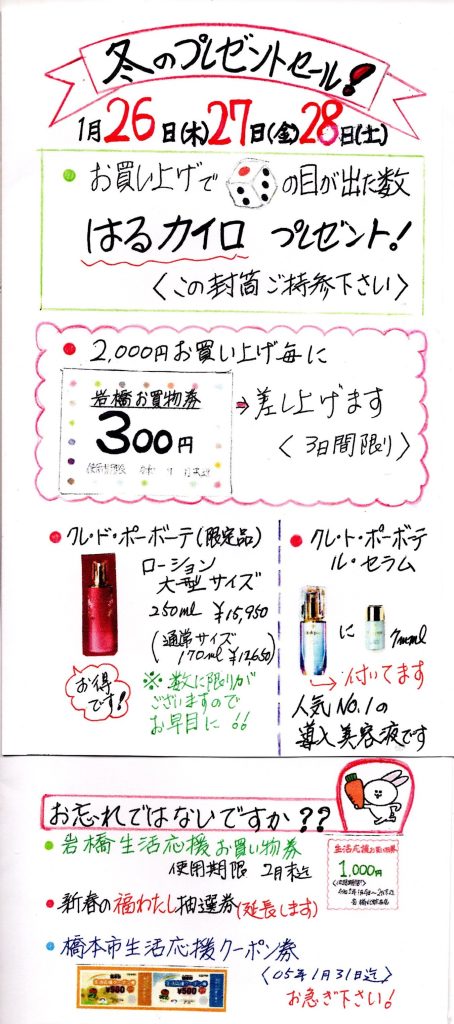 冬のプレゼントセール!
1月26日(木)27日(金)28日(土)
・お買い上げで の目が出た数
はるカイロ プレゼント!
〈この封筒ご持参下さい〉
・2,000円お買い上げ毎に
岩橋お買物券
300円
→差し上げます
〈3日間限り〉
・クレ・ド・ポーボーテ(限定品)
ローション
大型サイズ
250ml ¥15,950
(通常サイズ
170ml ¥12,650)
お得
です!
※数に限りが
ございますので
お早目に!!
・クレ・ト・ポーボーテ
ル・セラム
に
7ml
→付いてます
人気NO.1の
導入美容液です
お忘れではないですか??
・岩橋生活応援お買い物券
使用期限 2月末迄
生活応援お買い物券
1,000円
・新春の福わたし抽選券(延長します)
・橋本市生活応援クーポン券
〈05年1月31日迄〉
お急ぎ下さい!
¥500
¥500